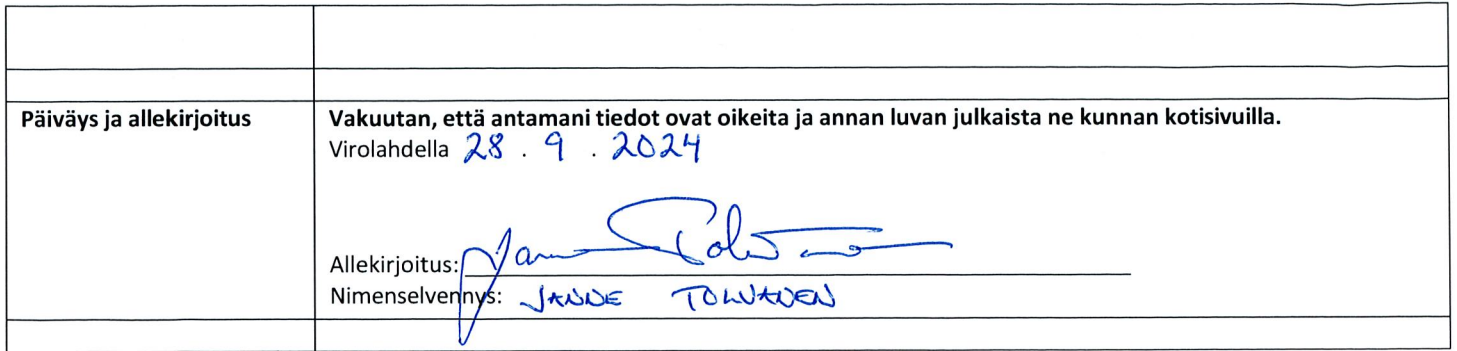 Päiväys ja allekirjoitus
Vakuutan, että antamani tiedot ovat oikeita ja annan luvan julkaista ne kunnan kotisivuilla.
Virolahdella 28 . 9 . 2024
Allekirjoitus: Janne Tolvanen
Nimenselvennys: JANNE TOLVANEN